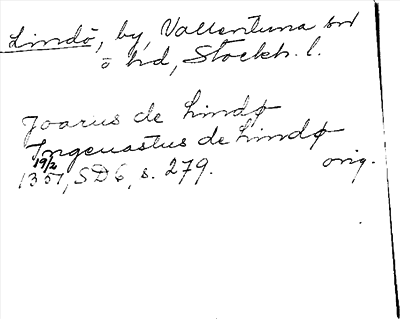 Lindö, by, Vallentuna sn
o hd, Stockh. l.
Joarus de Lindø
Ingeuastus de Lindø
19/2
1351, SD 6, s. 279. orig.